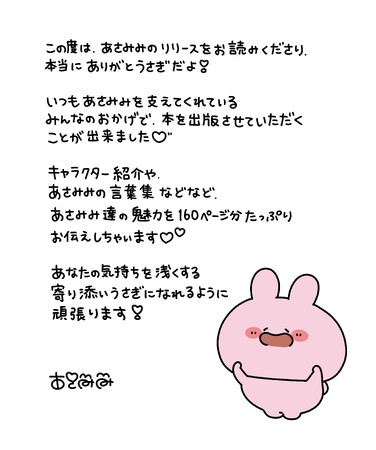 この度は、あさみみのリリースをお読みくださり、
本当にありがとうさぎだよ!
いつもあさみみを支えてくれている
みんなのおかげで、本を出版させていただく
ことが出来ました♡"
キャラクター紹介や、
あさみみの言葉集などなど、
あさみみ達の魅力を160ページ分たっぷり
お伝えしちゃいます♡♡
あなたの気持ちを浅くする
寄り添いうさぎになれるように
頑張ります!
あさみみ